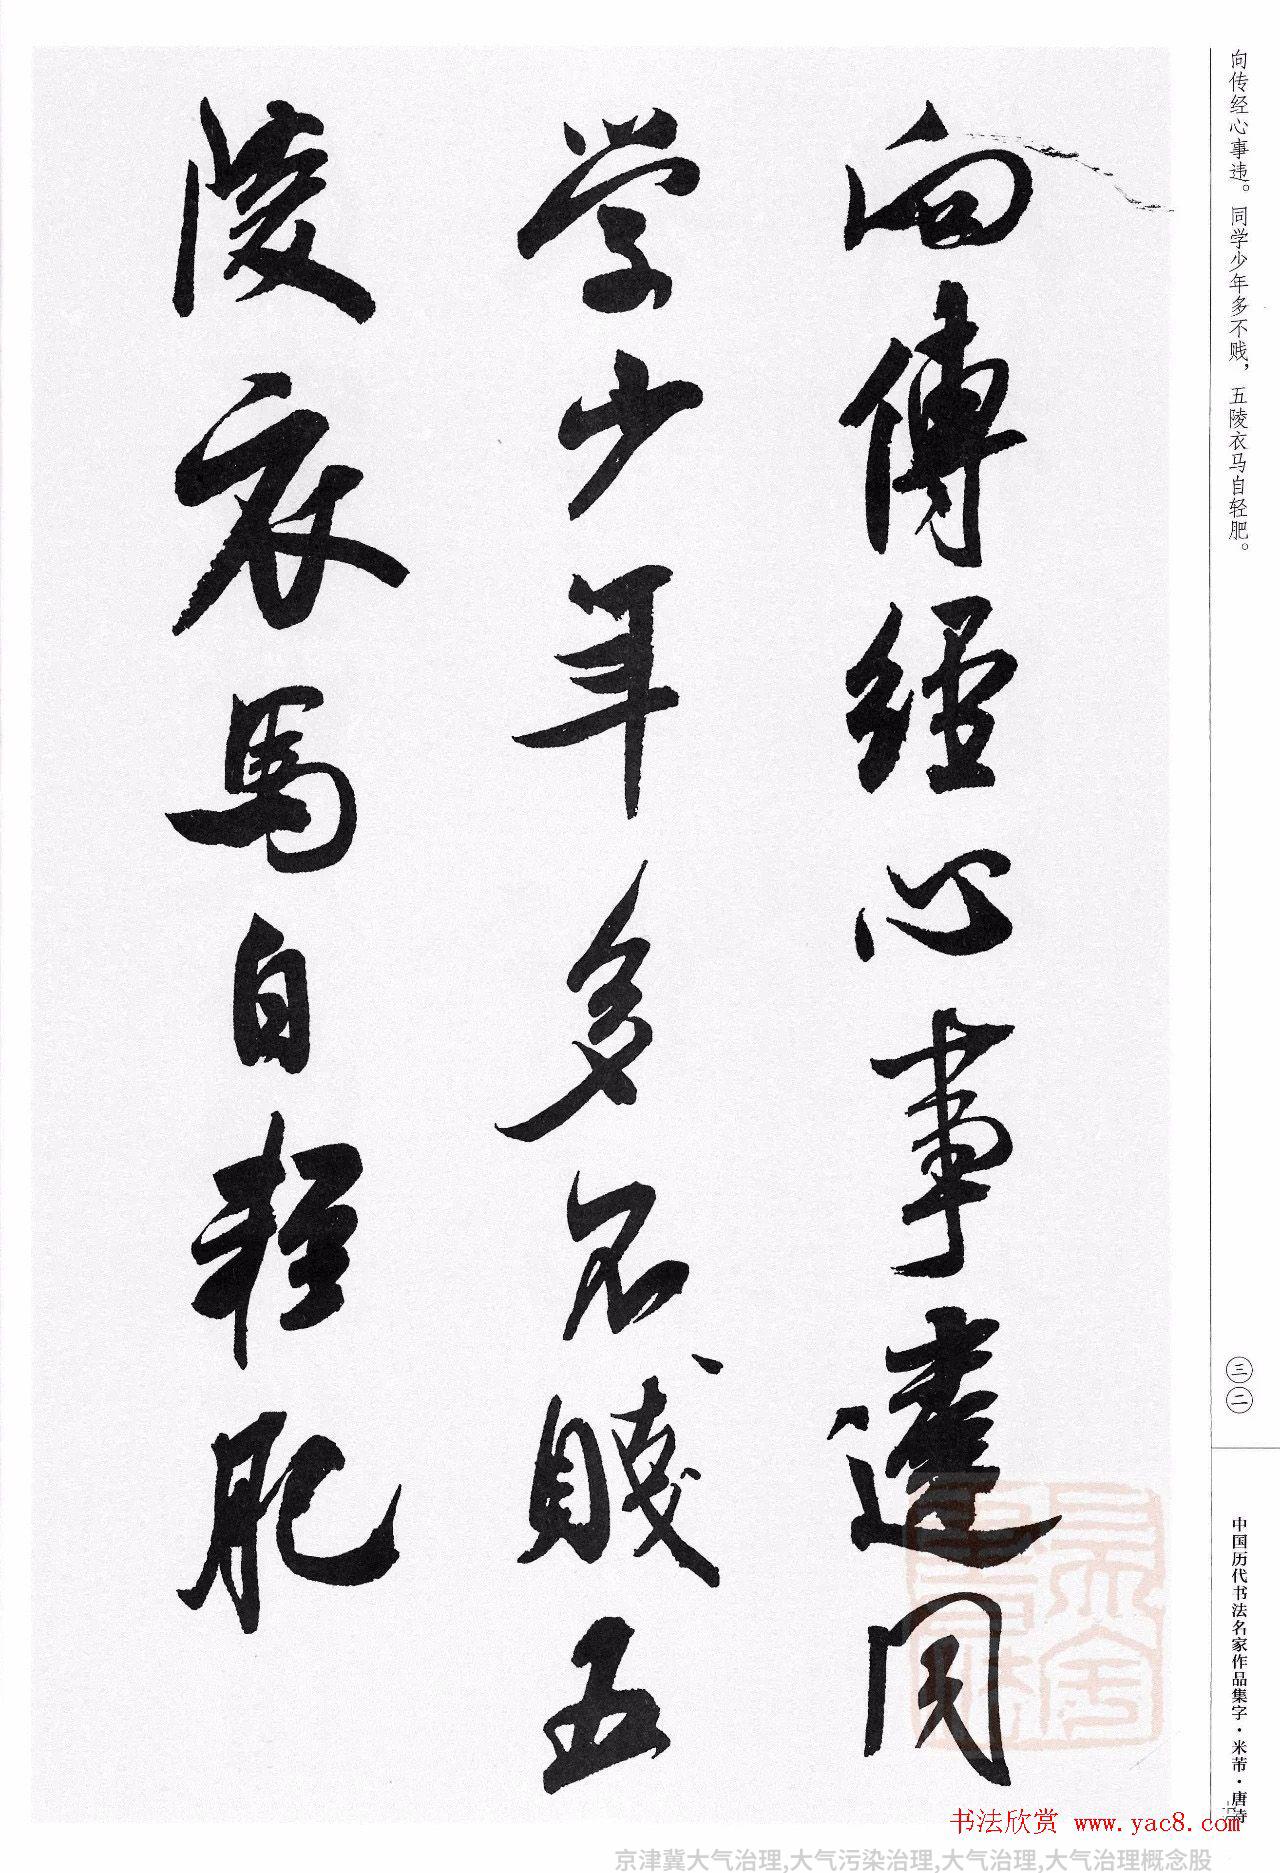 向傳經心事違同
学少年多不賤五
陵衣馬自輕肥
向传经心事违。同学少年多不贱，五陵衣马自轻肥。
三二
中国历代书法名家作品集字·米芾·唐诗
书法欣赏 www.yac8.com
京津冀大气治理,大气污染治理,大气治理,大气治理概念股